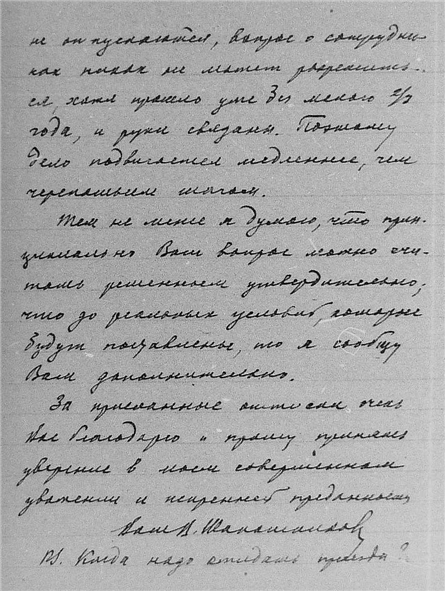 не отпускаются, вопрос о сотрудни-
ках никак не может разрешить-
ся, хотя прошло уже без малого 2/3
года, и руки связаны. Поэтому
дело подвигается медленнее, чем
черепашьим шагом.
Тем не менее я думаю, что прин-
ципиально Ваш вопрос можно счи-
тать решенным утвердительно;
что до реальных условий, которые
будут поставлены, то я сообщу
Вам дополнительно.
За присланные оттиски очень
Вас благодарю и прошу принять
уверение в моем совершенном
уважении и искренней преданности
Ваш
PS. Когда надо ожидать приезда?